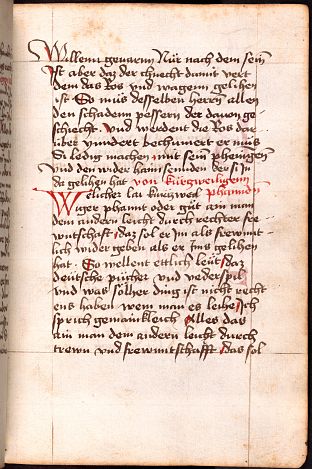 Willemi geuarnn Nür nach dem sein
Ist aber daz der chnecht damit vert
dem das Ros vnd wagenn gelihen
ist So müs desselben herrnn allen
den schadenn pessern der dauon ge-
schiecht. Vnd werdent die Ros dar
vber vnndert bechumert er müs
Si ledig machen mit sein phenigen
vnd den wider haim sennden der si In
da gelihen hat von kürtzweiligenn
Welicher lai kurczweil phannden
phannt oder güt ain man
dem andern leicht durch rechter fre-
wntschaft, daz sol er In als frewnt-
lich wider geben als er Ims gelihen
hat. So wellent ettlich leüt daz
deutsche pücher vnd vederspil
vnd was sölher ding ist nicht recht
ens haben wem man es leihe Ich
sprich gemainkleich Alles das
ain man dem andern leicht durch
trewn vnd frewntschafft, das sol